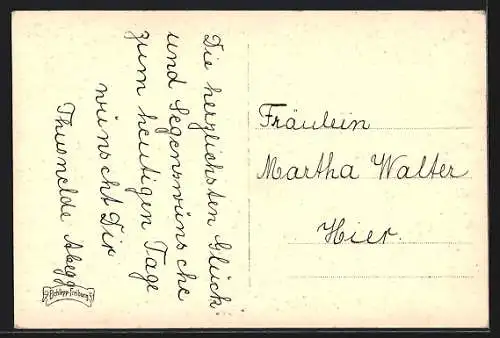 Die herzlichsten Glück-
und Segenswünsche
zum heutigen Tage
wünscht Dir
Thusnelde
Fräulein
Martha Walter
Hier.